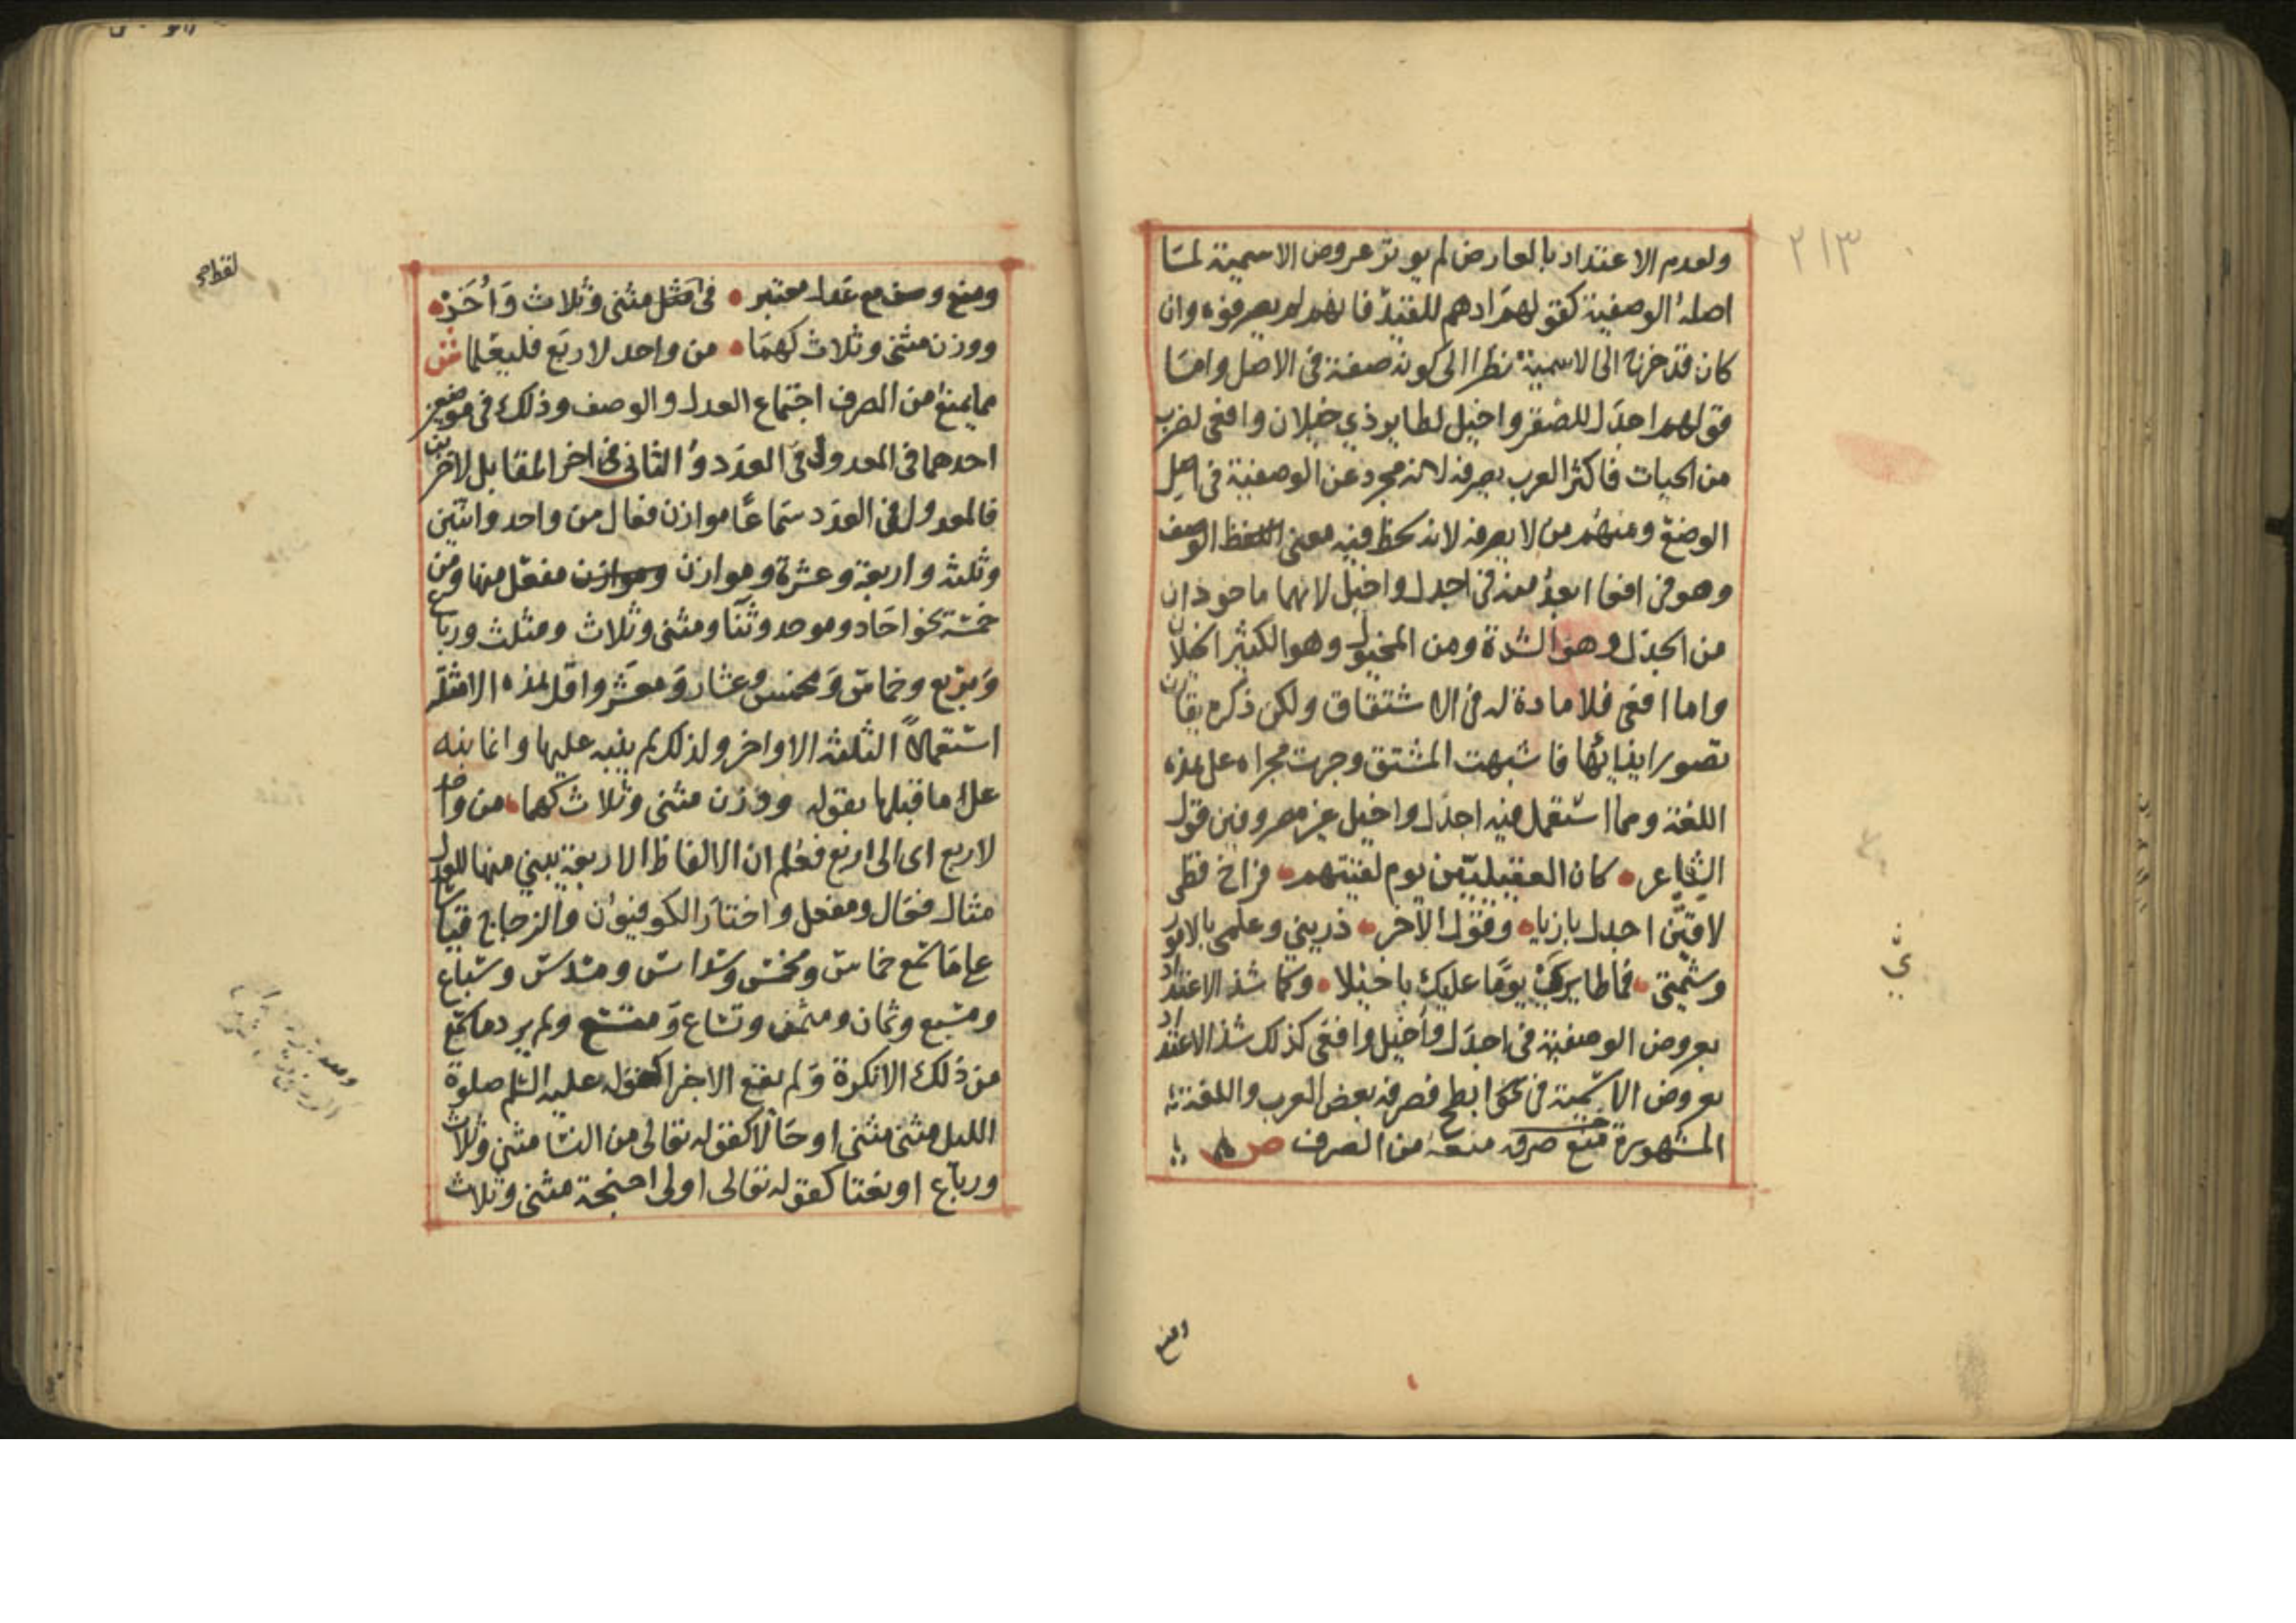 ٢١٣
ولعدم الاعتداد بالعارض لم يوثر عروض الاسمية لما
اصله الوصفية كقولهم ادهم للقيد فانهم لم يصرفوه وان
كان قد خرج الى الاسمية نظرا الى كونه صفة في الاصل واما
قولهم اجدل للصقر واخيل لطاير ذي خيلان وافعى لضرب
من الحيات فاكثر العرب يصرفه لانه مجرد عن الوصفية في اصل
الوضع ومنهم من لا يصرفه لانه لحظ فيه معنى الوصف
وهو في افعى ابعد منه في اجدل واخيل لانهما ماخوذان
من الجدل وهو الشدة ومن المخيول وهو الكثير الخيلان
واما افعى فلا مادة له في الاشتقاق ولكن ذكره يقارن
تصور ايذائها فاشبهت المشتق وجرت مجراه على هذه
اللغة ومما استعمل فيه اجدل واخيل غير مصروفين قول
الشاعر كان العقيليين يوم لقيتهم فراخ قطى
لاقين اجدل بازيا وقول الاخر ذريني وعلمي بالامور
وشيمتي فما طايري يوما عليك باخيلا وكما شذ الاعتداد
بعروض الوصفية في اجدل واخيل وافعى كذلك شذ الاعتداد
بعروض الاسمية في نحو ابطح فصرفه بعض العرب واللغة
المشهورة منعه من الصرف ص
ومنع
ومنع وصف مع عدل معتبر في مثل مثنى وثلاث واخر
ووزن مثنى وثلاث كهما من واحد لاربع فليعلما ش
مما يمنع من الصرف اجتماع العدل والوصف وذلك في موضعين
احدهما في المعدول في العدد والثاني في اخر المقابل لاخرين
فالمعدول في العدد سماعا موازن فعال من واحد واثنين
وثلثة واربعة وعشرة وموازن وموازن مفعل منها ومن
خمسة نحو احاد وموحد وثنا ومثنى وثلاث ومثلث ورباع
ومربع وخماس ومخمس وعشار ومعشر واقل هذه الامثلة
استعمالا الثلثة الاواخر ولذلك لم ينبه عليها وانما نبه
على ما قبلها بقوله ووزن مثنى وثلاث كهما من واحد
لاربع اى الى اربع فعلم ان الالفاظ الاربعة يبنى منها للعدل
مثال فعال ومفعل واختار الكوفيون والزجاج قياسا
على ما سمع خماس ومخمس وسداس ومسدس وسباع
ومسبع وثمان ومثمن وتساع ومتسع ولم يرد ما سمع
من ذلك الا نكرة ولم يقع الا خبرا كقوله عليه السلم صلوة
الليل مثنى مثنى او حالا كقوله تعالى من النسا مثنى وثلاث
ورباع او نعتا كقوله تعالى اولى اجنحة مثنى وثلاث